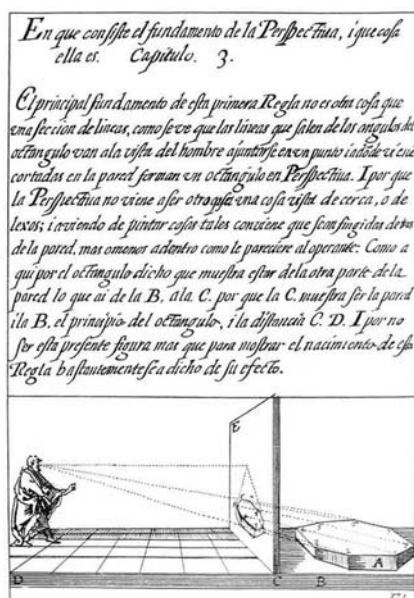 En que consiste el fundamento de la Perspectiua, i que cosa
ella es. Capitulo. 3.
El principal fundamento de esta primera Regla no es otra cosa que
una seccion de lineas, como se ve que las lineas que salen de los angulos del
octangulo van a la vista del hombre a juntarse en un punto i adonde viene
cortadas en la pared forman un octangulo en Perspectiua. I por que
la Perspectiua no viene a ser otra que una cosa vista de cerca, o de
lexos; i aviendo de pintar cosas tales conviene que sean fingidas detras
de la pared, mas o menos adentro como le pareciere al operante: Como a
qui por el octangulo dicho que muestra estar de la otra parte de la
pared lo que ai de la B. a la C. por que la C. muestra ser la pared
i la B. el principio del octangulo, i la distancia C. D. I por no
ser esta presente figura mas que para mostrar el nacimiento de esta
Regla bastantemente se a dicho de su efecto.
E
A
D C B